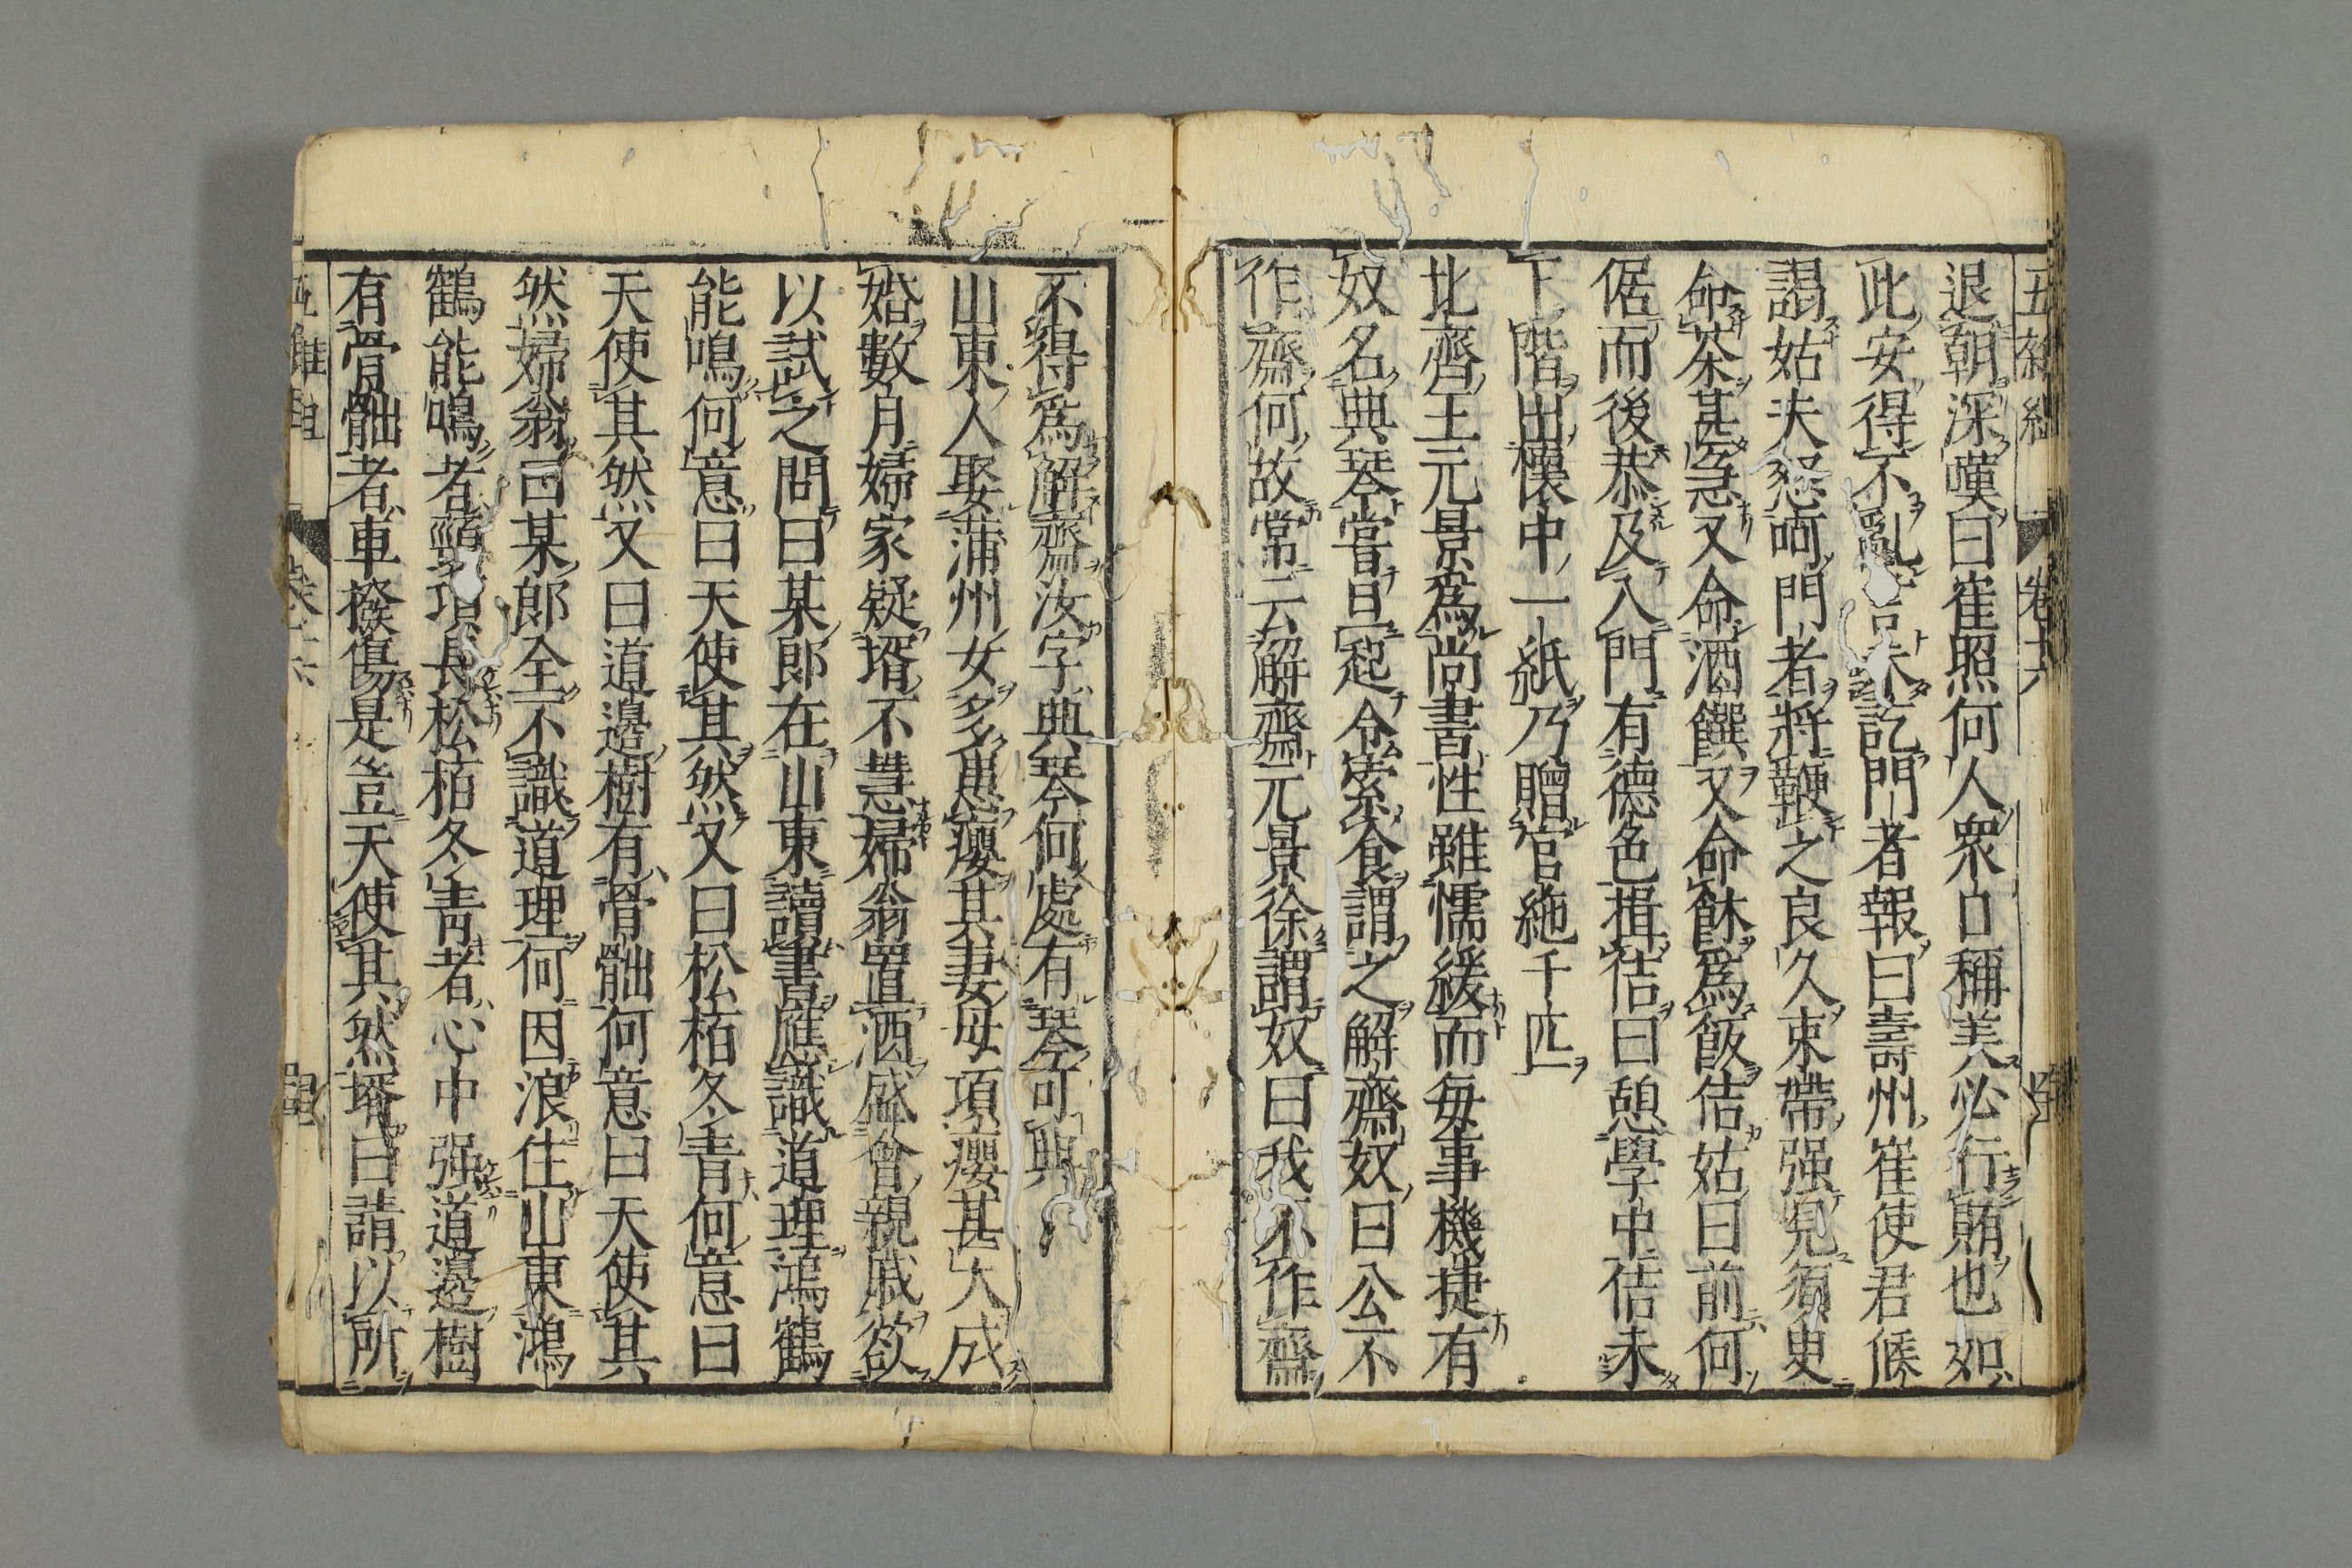 退朝深嘆曰崔照何人衆口稱美必行賄也如
此安得不亂言未訖門者報曰壽州崔使君候
謁姑夫怒呵門者將鞭之良久束帶强見須臾
命茶甚急又命酒饌又命餗爲飯佶姑曰前何
倨而後恭及入門有德色揖佶曰憩學中佶未
下階出懷中一紙乃贈官絁千匹
北齊王元景爲尚書性雖懦緩而每事機捷有
奴名典琴嘗旦起令索食謂之解齋奴曰公不
作齋何故常云解齋元景徐謂奴曰我不作齋
不得爲解齋汝字典琴何處有琴可典
山東人娶蒲州女多患癭其妻母項癭甚大成
婚數月婦家疑壻不慧婦翁置酒盛會親戚欲
以試之問曰某郎在山東讀書應識道理鴻鶴
能鳴何意曰天使其然又曰松栢冬青何意曰
天使其然又曰道邊樹有骨䯐何意曰天使其
然婦翁曰某郎全不識道理何因浪住山東鴻
鶴能鳴者頸項長松栢冬青者心中强道邊樹
有骨䯐者車撥傷是豈天使其然壻曰請以所